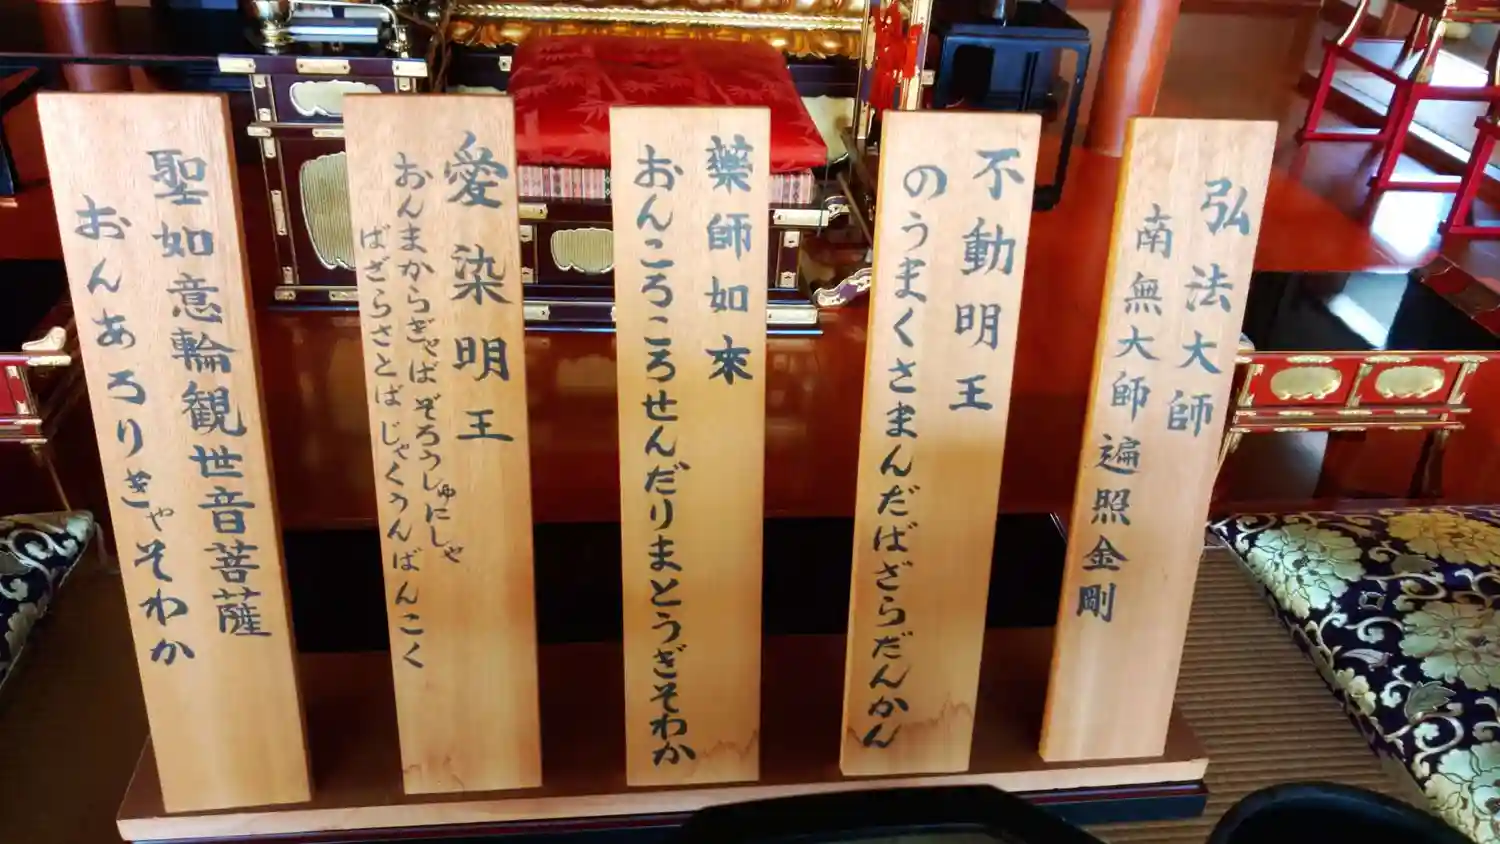 弘法大師
南無大師遍照金剛
不動明王
のうまくさまんだばざらだんかん
藥師如來
おんころころせんだりまとうぎそわか
愛染明王
おんまからぎゃばぞろうしゅにしゃ
ばざらさとばじゃくうんばんこく
聖如意輪観世音菩薩
おんあろりきゃそわか